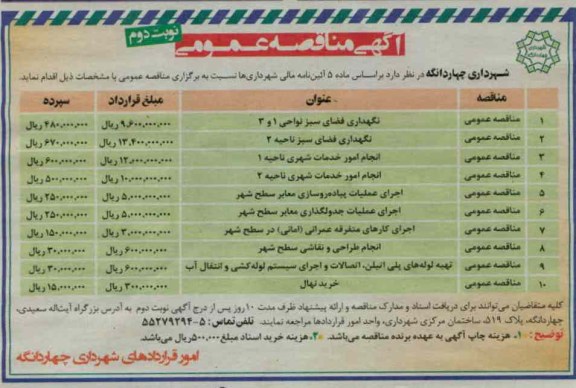 آگهی مناقصه عمومی
نوبت دوم
شهرداری چهاردانگه در نظر دارد براساس ماده ۵ آئین‌نامه مالی شهرداری‌ها نسبت به برگزاری مناقصه عمومی با مشخصات ذیل اقدام نماید.
مناقصه عنوان مبلغ قرارداد سپرده
۱ مناقصه عمومی نگهداری فضای سبز نواحی ۱ و ۳ ۹,۶۰۰,۰۰۰,۰۰۰ ریال ۴۸۰,۰۰۰,۰۰۰ ریال
۲ مناقصه عمومی نگهداری فضای سبز ناحیه ۲ ۱۳,۴۰۰,۰۰۰,۰۰۰ ریال ۶۷۰,۰۰۰,۰۰۰ ریال
۳ مناقصه عمومی انجام امور خدمات شهری ناحیه ۱ ۱۲,۰۰۰,۰۰۰,۰۰۰ ریال ۶۰۰,۰۰۰,۰۰۰ ریال
۴ مناقصه عمومی انجام امور خدمات شهری ناحیه ۲ ۱۰,۰۰۰,۰۰۰,۰۰۰ ریال ۵۰۰,۰۰۰,۰۰۰ ریال
۵ مناقصه عمومی اجرای عملیات پیاده‌روسازی معابر سطح شهر ۵,۰۰۰,۰۰۰,۰۰۰ ریال ۲۵۰,۰۰۰,۰۰۰ ریال
۶ مناقصه عمومی اجرای عملیات جدولگذاری معابر سطح شهر ۵,۰۰۰,۰۰۰,۰۰۰ ریال ۲۵۰,۰۰۰,۰۰۰ ریال
۷ مناقصه عمومی اجرای کارهای متفرقه عمرانی (امانی) در سطح شهر ۳,۰۰۰,۰۰۰,۰۰۰ ریال ۱۵۰,۰۰۰,۰۰۰ ریال
۸ مناقصه عمومی انجام طراحی و نقاشی سطح شهر ۶۰۰,۰۰۰,۰۰۰ ریال ۳۰,۰۰۰,۰۰۰ ریال
۹ مناقصه عمومی تهیه لوله‌های پلی اتیلن، اتصالات و اجرای سیستم لوله‌کشی و انتقال آب ۶۰۰,۰۰۰,۰۰۰ ریال ۳۰,۰۰۰,۰۰۰ ریال
۱۰ مناقصه عمومی خرید نهال ۳۰۰,۰۰۰,۰۰۰ ریال ۱۵,۰۰۰,۰۰۰ ریال
کلیه متقاضیان می‌توانند برای دریافت اسناد و مدارک مناقصه و ارائه پیشنهاد ظرف مدت ۱۰ روز پس از درج آگهی نوبت دوم به آدرس بزرگراه آیت‌اله سعیدی،
چهاردانگه، پلاک ۵۱۹، ساختمان مرکزی شهرداری، واحد امور قراردادها مراجعه نمایند. تلفن تماس: ۵-۵۵۲۷۹۲۹۴
توضیح: ۱- هزینه چاپ آگهی به عهده برنده مناقصه می‌باشد. ۲- هزینه خرید اسناد مبلغ ۵۰۰,۰۰۰ ریال می‌باشد.
امور قراردادهای شهرداری چهاردانگه